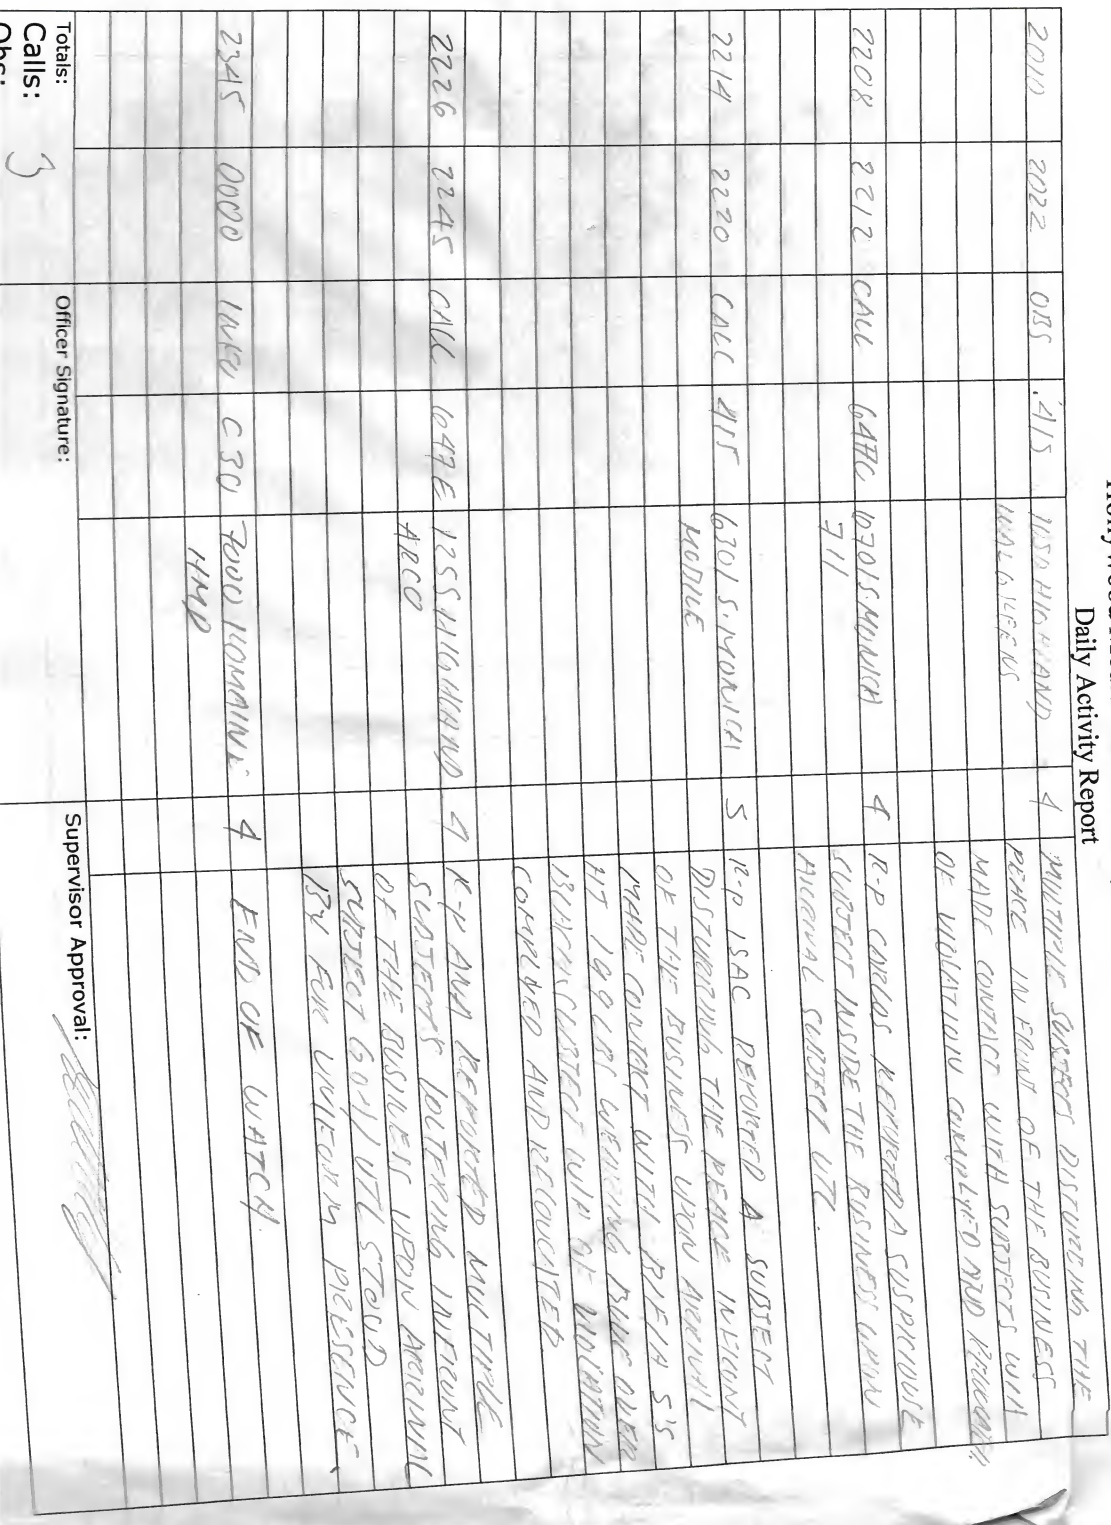 Daily Activity Report
2010 2022 OBS 415 HIGHLAND 4 MULTIPLE SUBJECTS DISTURBING THE
WALGREENS PEACE IN FRONT OF THE BUSINESS
MADE CONTACT WITH SUBJECTS WIA
OF VIOLATION COMPLYED AND
2208 2212 CALL S.MONICA 4 R-P CARLOS REPORTED A SUSPICIOUSE
711 SUBJECT INSIDE THE BUSINESS UPON
ARRIVAL SUBJECT UTL.
2214 2220 CALL 415 6301 S.MONICA 5 R-P ISAC REPORTED A SUBJECT
MOBILE DISTURBING THE PEACE INFRONT
OF THE BUSINESS UPON ARRIVAL
MADE CONTACT WITH 5'5
WEARING BLUE OVER
SUBJECT WIA OF VIOLATION
COMPLYED AND RELOCATED
2226 2245 CALL 647E 1255 HIGHLAND 4 R-P ANA REPORTED MULTIPLE
ARCO SUBJECTS LOITERING INFRONT
OF THE BUSINESS UPON ARRIVAL
SUBJECT GOA/UTL STOOD
BY FOR UNIFORM PRESENCE.
2345 0000 INFO C30 7000 ROMAINE 4 END OF WATCH.
HMP
Totals:
Calls: 3
Obs:
Officer Signature:
Supervisor Approval: